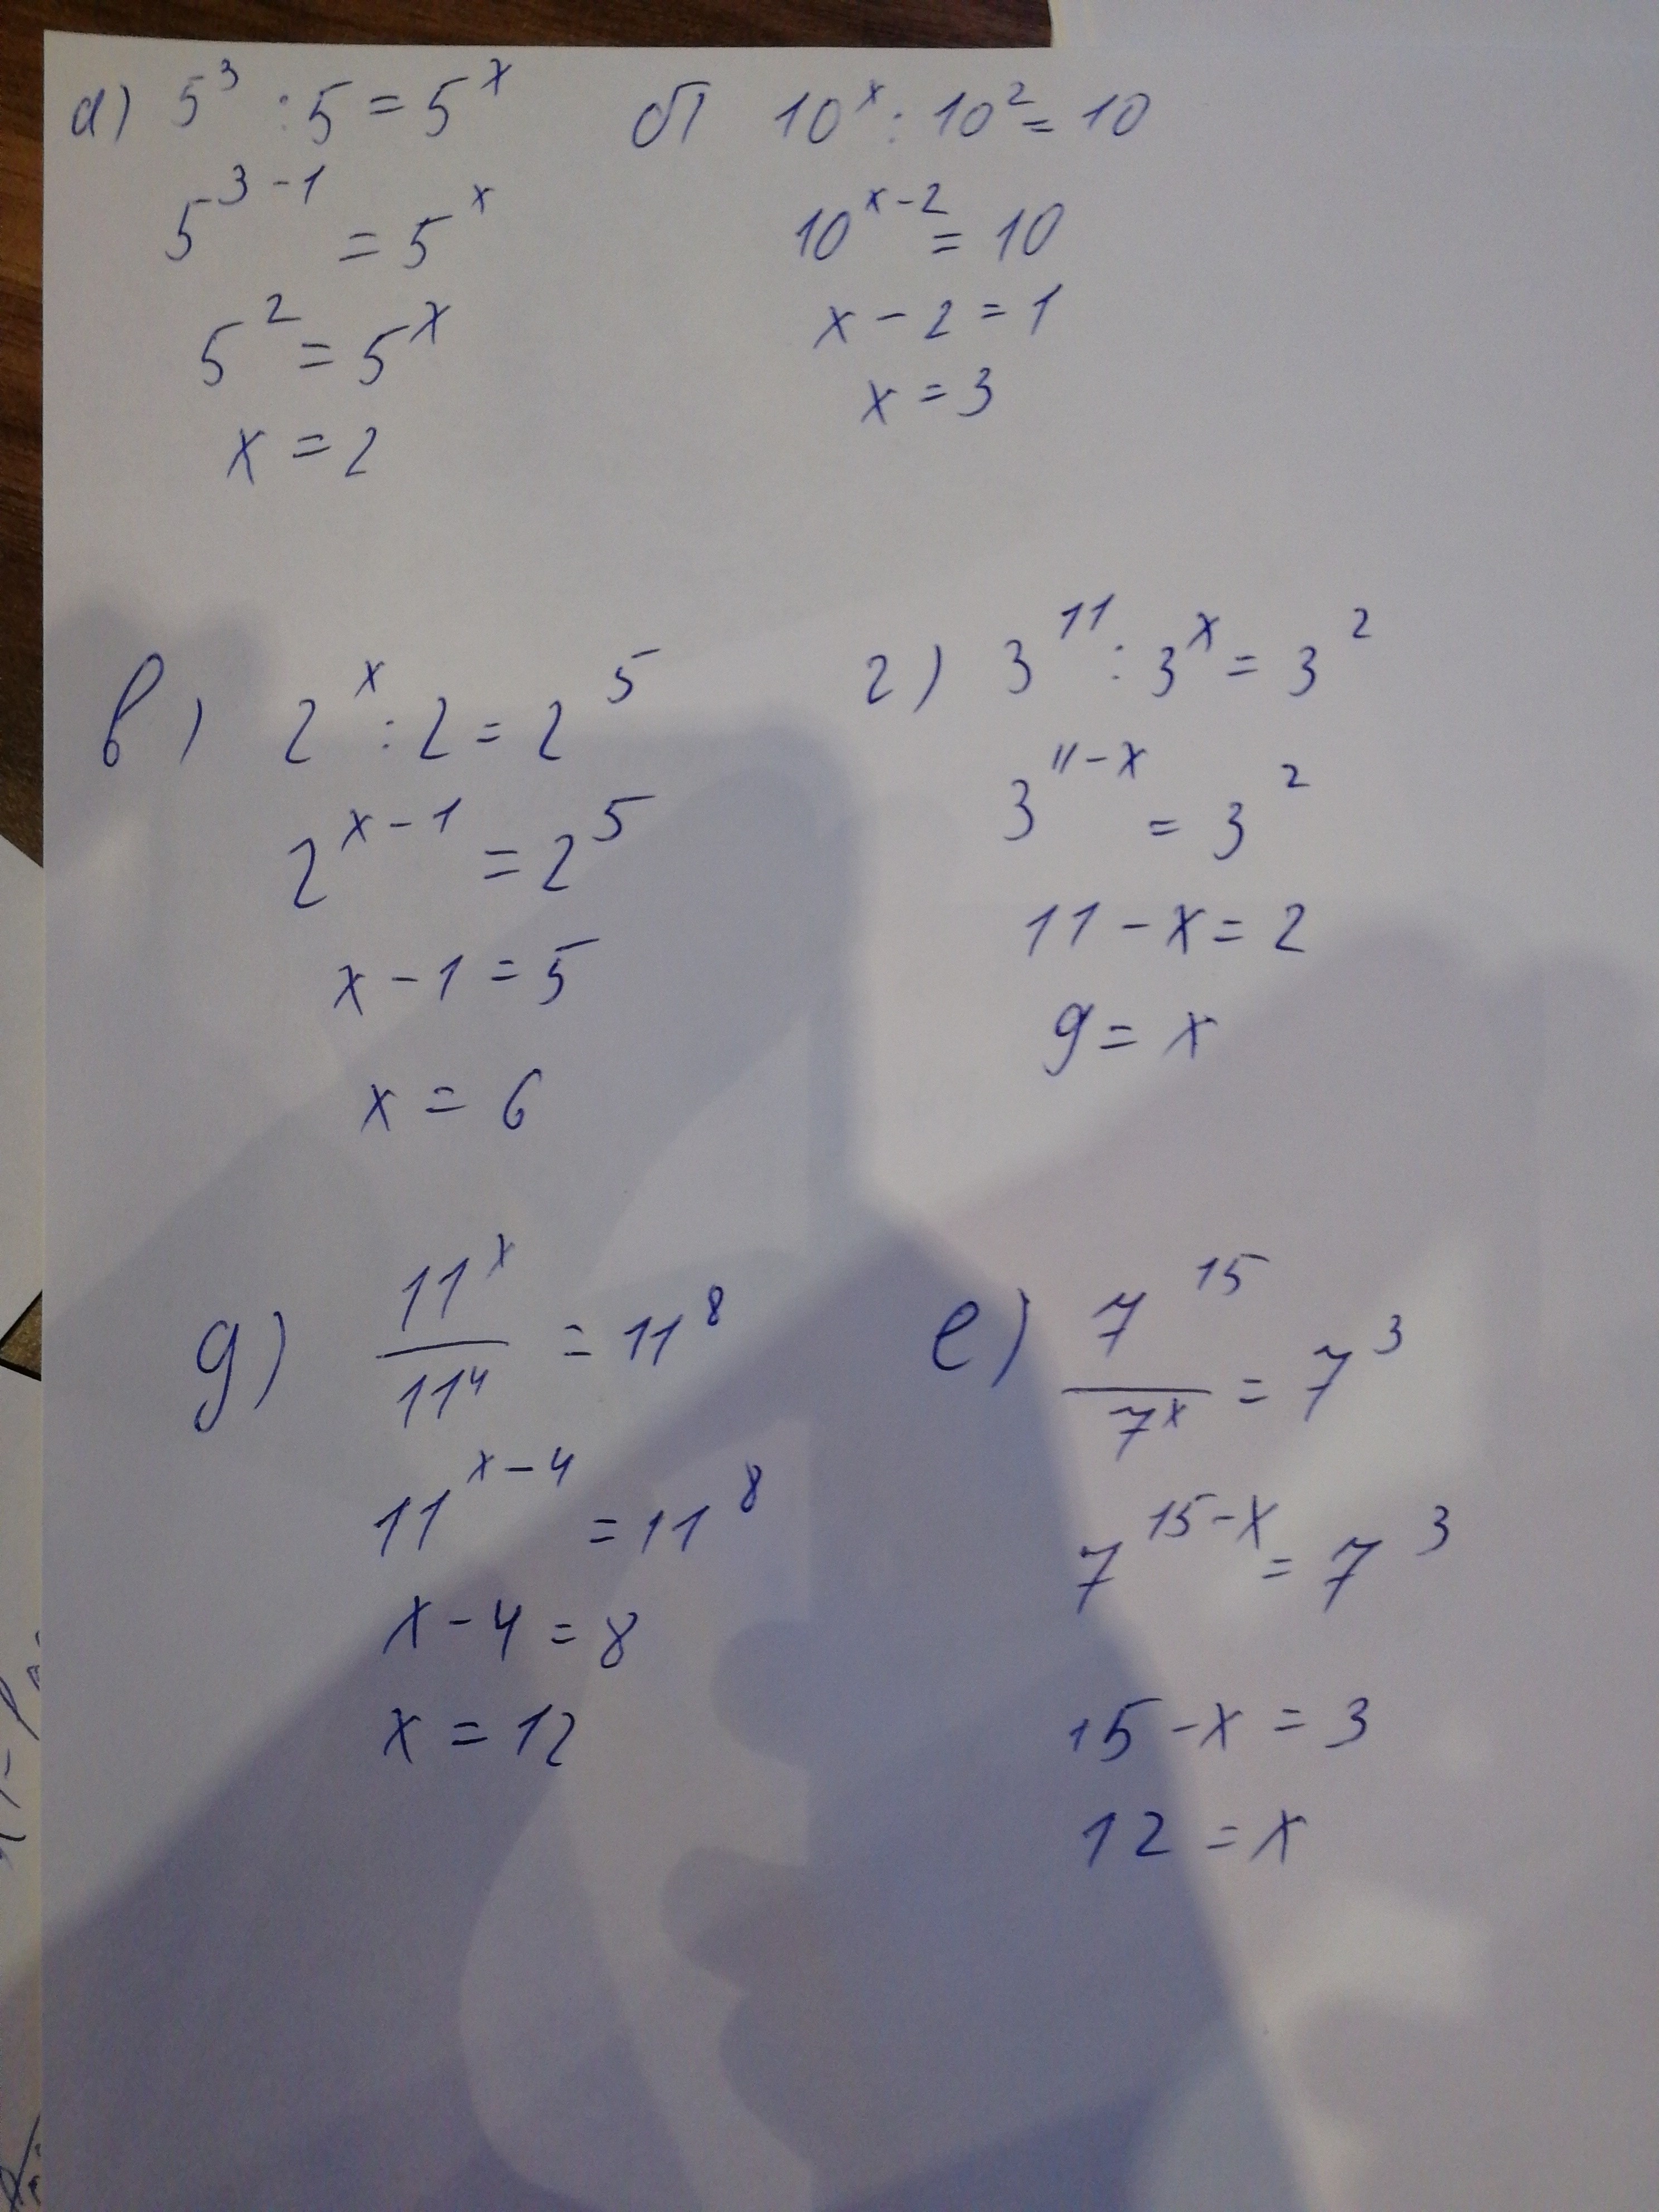 а) 5³ : 5 = 5ˣ
5³⁻¹ = 5ˣ
5² = 5ˣ
x = 2
б) 10ˣ : 10² = 10
10ˣ⁻² = 10
x - 2 = 1
x = 3
в) 2ˣ : 2 = 2⁵
2ˣ⁻¹ = 2⁵
x - 1 = 5
x = 6
г) 3¹¹ : 3ˣ = 3²
3¹¹⁻ˣ = 3²
11 - x = 2
9 = x
д) 11ˣ / 11⁴ = 11⁸
11ˣ⁻⁴ = 11⁸
x - 4 = 8
x = 12
е) 7¹⁵ / 7ˣ = 7³
7¹⁵⁻ˣ = 7³
15 - x = 3
12 = x